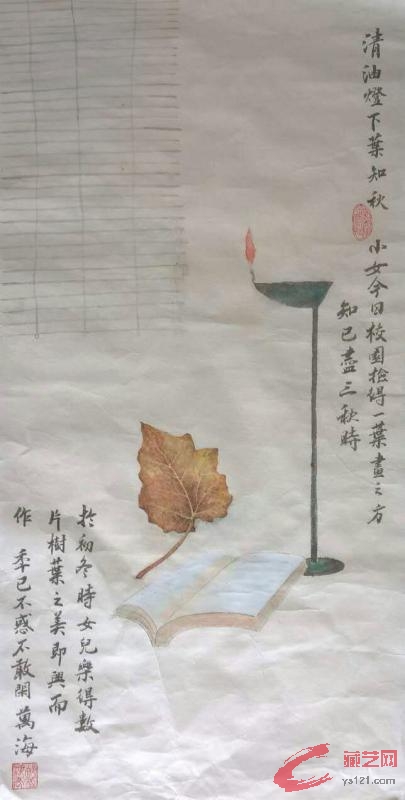 清油燈下葉知秋
小女今日校園撿得一葉畫之方
知已盡三秋時
於初冬時女兒樂得數
片樹葉之美即興而
作 秊已不惑不敢閑 萬海
藏艺网
ys121.com